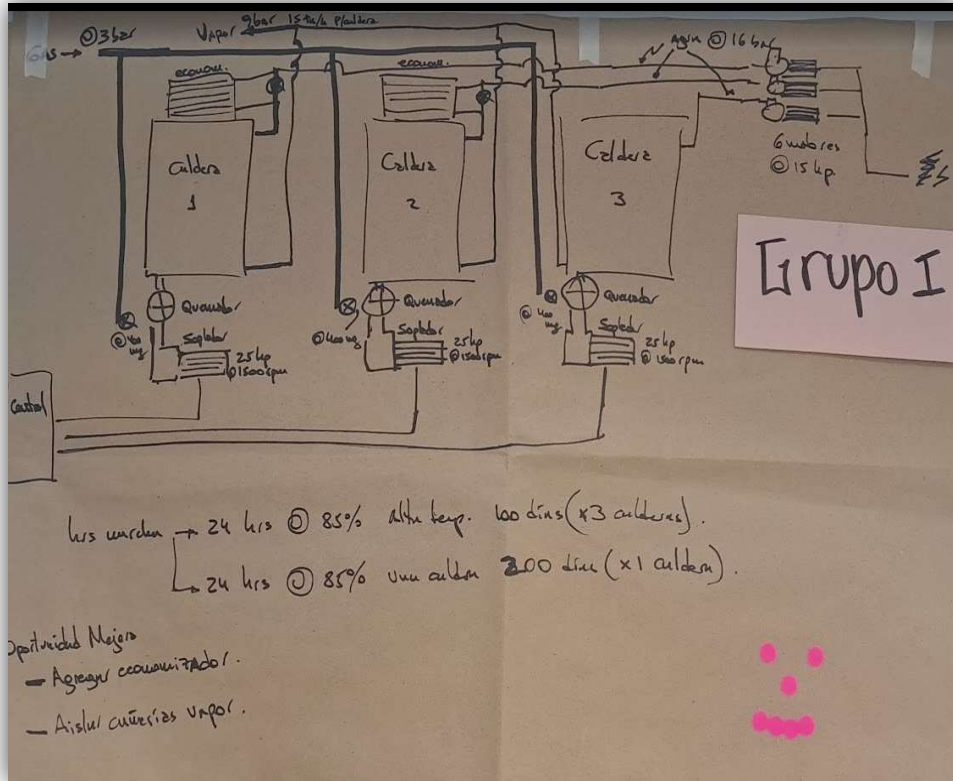 @ 3 bar
Vapor 9bar 15 tn/h p/caldera
Agua @ 16 bar
econom.
econom.
6 motores
@ 15 hp
Caldera
1
Caldera
2
Caldera
3
Grupo I
Quemador
Quemador
Quemador
@ 400
mg
@ 400 mg
@ 400
mg
Soplador
25 hp
@ 1500 rpm
Soplador
25 hp
@ 1500 rpm
Soplador
25 hp
@ 1500 rpm
Control
hrs marcha → 24 hrs @ 85% alta temp. 100 dias (x3 calderas).
→ 24 hrs @ 85% una caldera 200 dias (x1 caldera).
Oportunidad Mejora
— Agregar economizador.
— Aislar cañerias vapor.